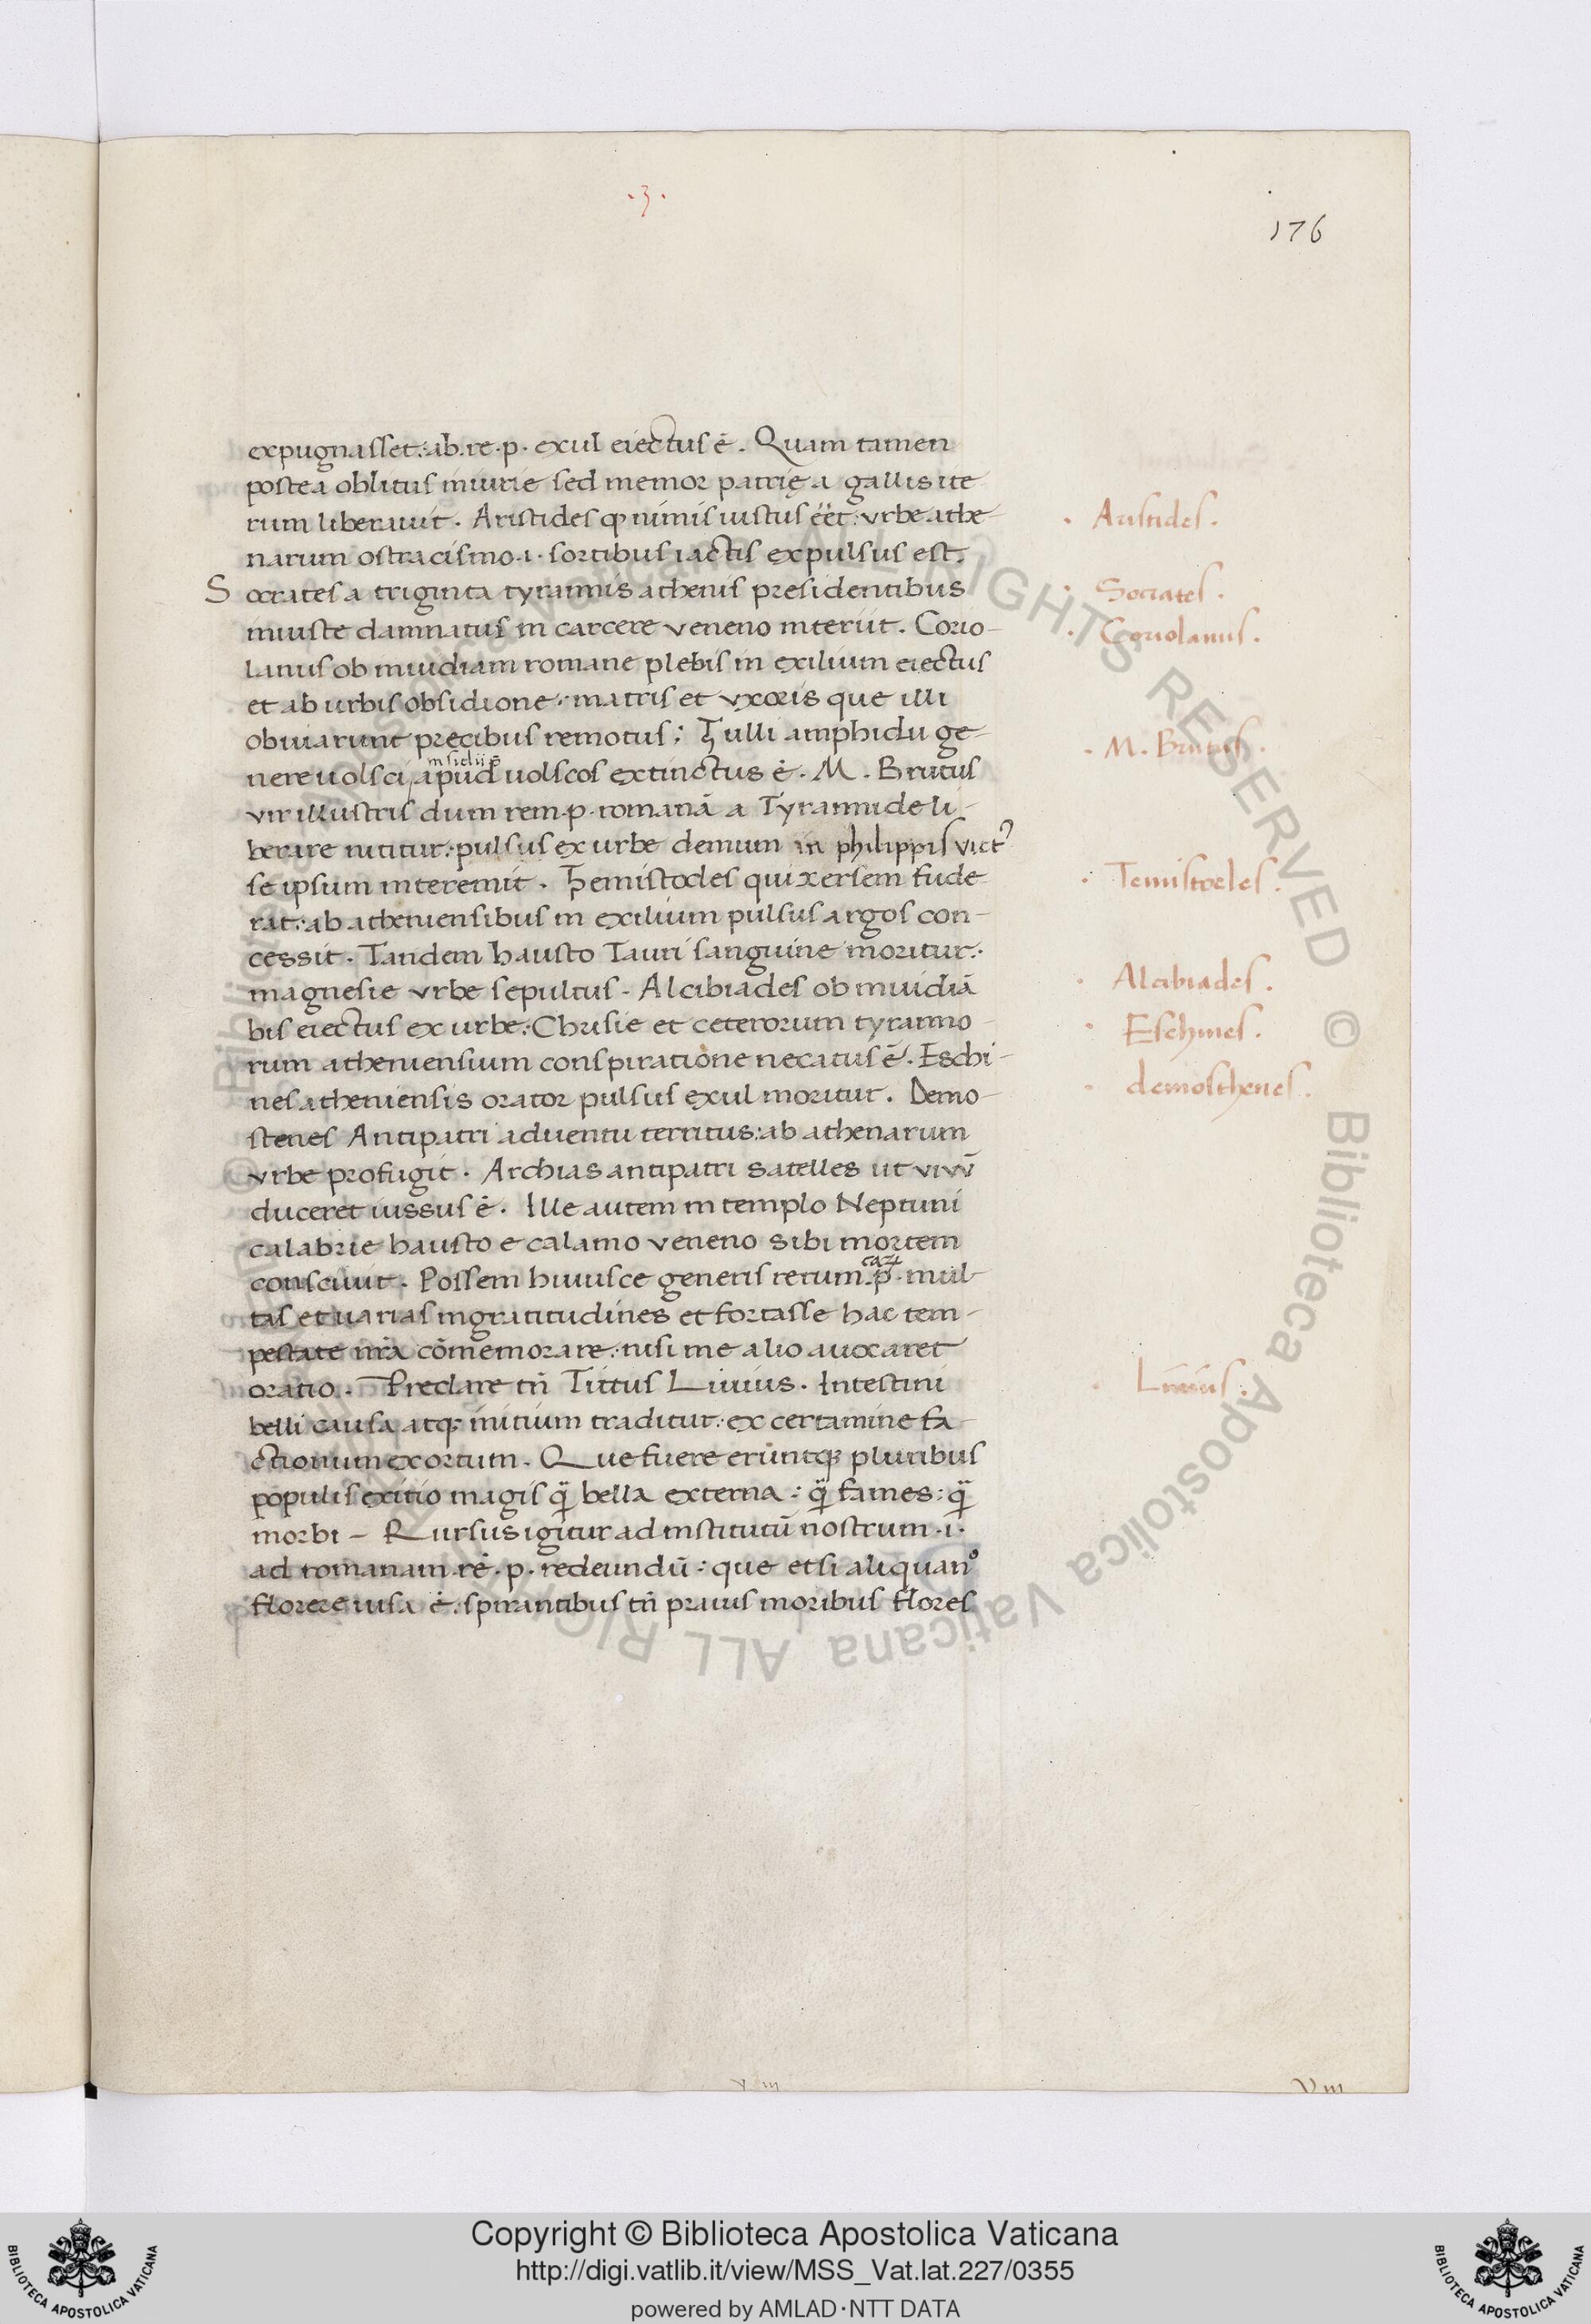 .3.
176
expugnasset: ab. re. p. exul eiectus ē. Quam tamen
postea oblitus iniurie sed memor patrię a gallis ite
rum liberauit. Aristides qꝫ nimis iustus ēēt: vrbe athe-
narum ostracismo .i. sortibus iactis expulsus est.
Socrates a triginta tyrannis athenis presidentibus
iniuste damnatus in carcere veneno interiit. Corio-
lanus ob inuidiam romane plebis in exilium eiectus
et ab urbis obsidione: matris et vxoris que illi
obuiarunt precibus remotus; Tulli amphidii ge-
insidiis
nere uolsci apud uolscos extinctus ē. M. Brutus
vir illustris dum rem. p. romanā a Tyrannide li-
berare nititur: pulsus ex urbe demum in philippis vict᾽
se ipsum interemit. Themistocles qui xersem fude
rat: ab atheniensibus in exilium pulsus argos con-
cessit. Tandem hausto Tauri sanguine moritur:
magnesie vrbe sepultus. Alcibiades ob inuidiā
bis eiectus ex urbe: Chrisie et ceterorum tyranno-
rum atheniensium conspiratione necatus ē. Eschi-
nes atheniensis orator pulsus exul moritur. Demo-
stenes Antipatri aduentu territus: ab athenarum
vrbe profugit. Archias antipatri satelles ut vivū
duceret iussus ē. Ille autem in templo Neptuni
calabrie hausto e calamo veneno sibi mortem
consciuit. Possem huiusce generis rerum. p. mul-
caꝝ
tas et uarias ingratitudines et fortasse hac tem-
pestate nr̄a cōmemorare: nisi me alio auocaret
oratio. Preclare tn̄ Tittus Liuius. Intestini
belli causa atqꝫ initium traditur: ex certamine fa-
ctionum exortum. Que fuere erūntqꝫ pluribus
populis exitio magis q̄ bella externa: q̄ fames: q̄
morbi – Rursus igitur ad institutū nostrum .i.
ad romanam rē. p. redeundū: que etsi aliquanº
florere uisa ē: spirantibus tn̄ prauis moribus flores
. Aristides.
. Socrates.
. Coriolanus.
. M. Brutus.
. Temistocles.
. Alcibiades.
. Eschines.
. demosthenes.
. Liuius.
V III
V III
© Biblioteca Apostolica Vaticana ALL RIGHTS RESERVED © Biblioteca Apostolica Vaticana ALL RIGHTS RESERVED
Copyright © Biblioteca Apostolica Vaticana
http://digi.vatlib.it/view/MSS_Vat.lat.227/0355
powered by AMLAD・NTT DATA
BIBLIOTECA APOSTOLICA VATICANA
BIBLIOTECA APOSTOLICA VATICANA